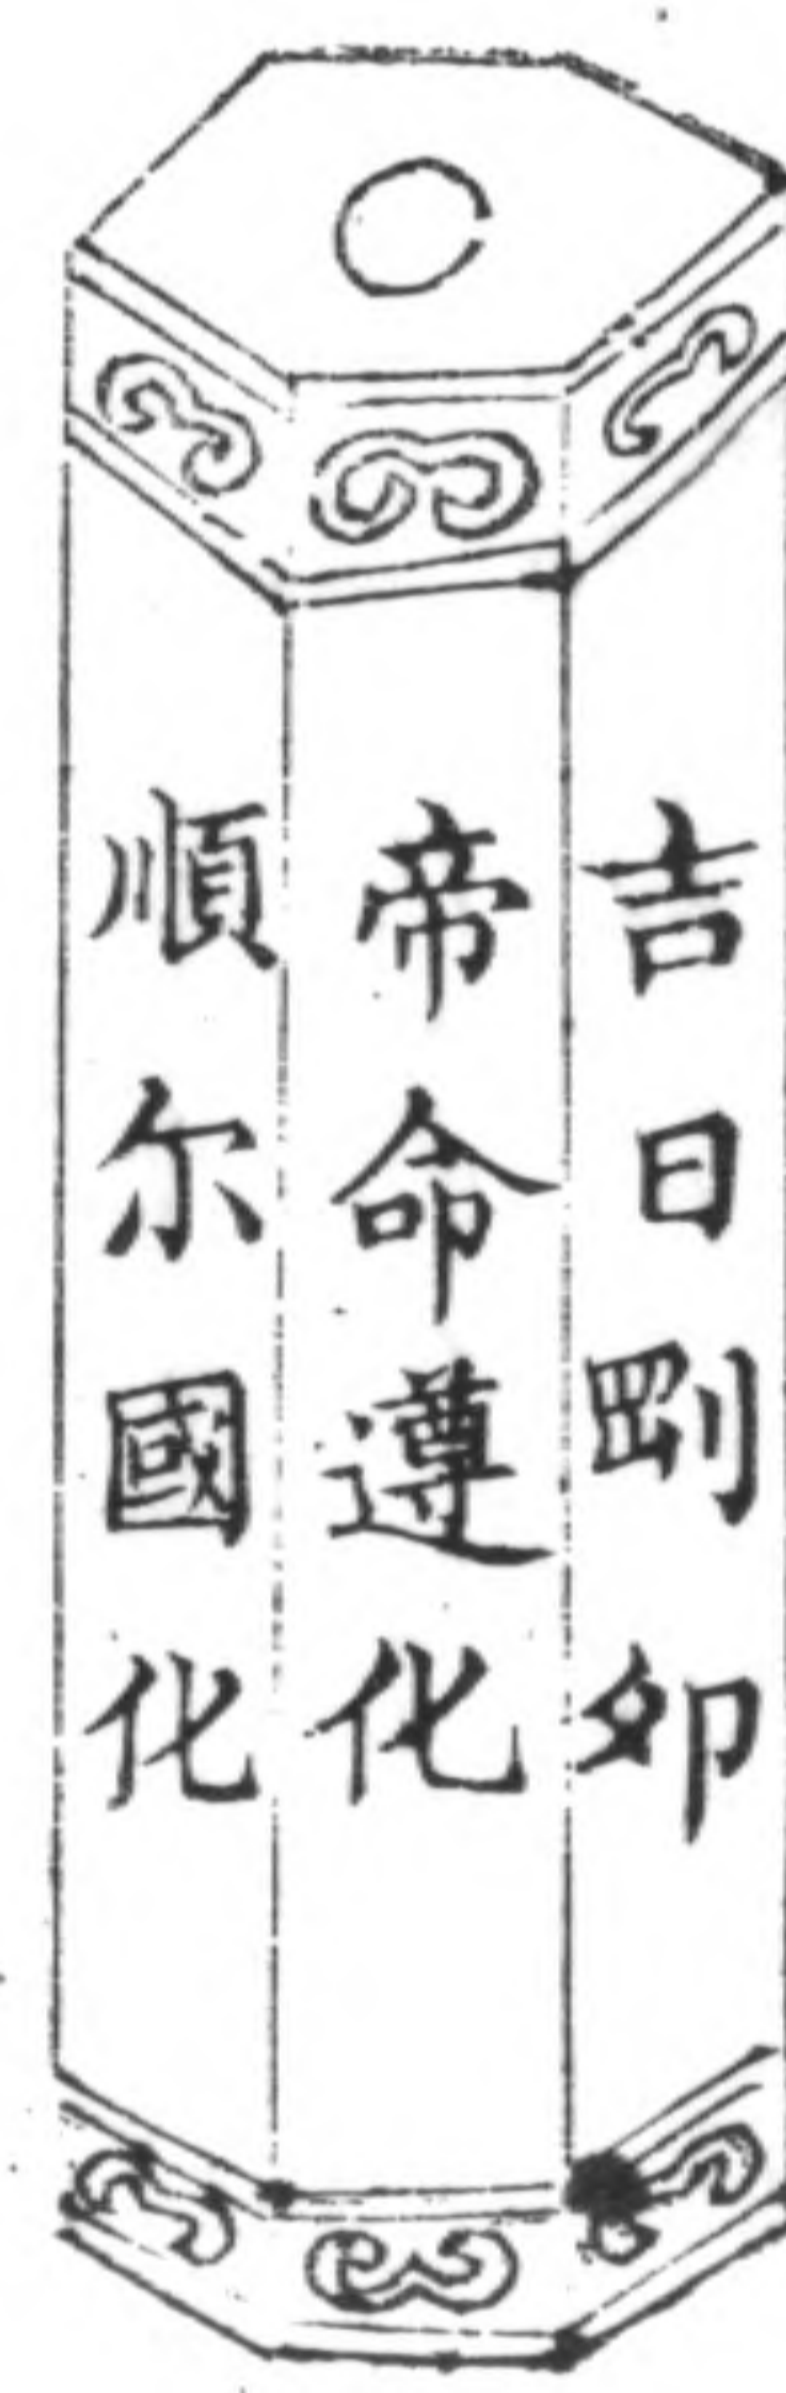 吉日剛卯
帝命遵化
順尔國化